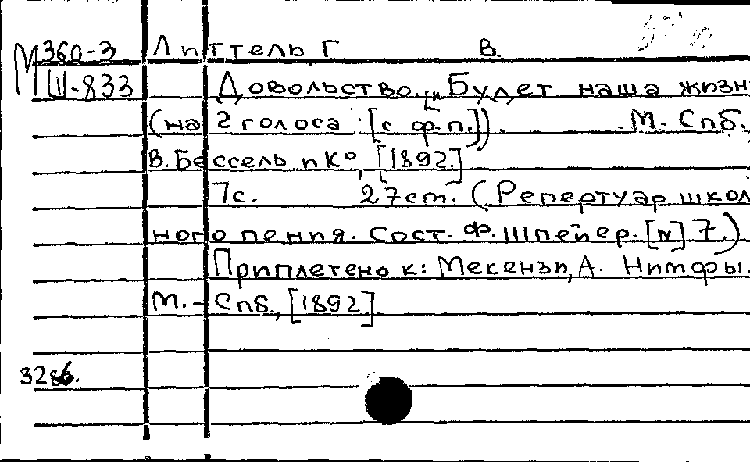 М 360-3 Литтель Г В.
Ш-833 Довольство. „Будет наша жизн
(на 2 голоса [с ф.п.]). М. Спб.
В. Бессель и Кº, [1892.]
7с. 27cm. (Репертуар школ
ного пения. Сост. Ф. Шпейер. [N] 7.)
Приплетено к: Мекензи, А. Нимфы.
М.-Спб., [1892]